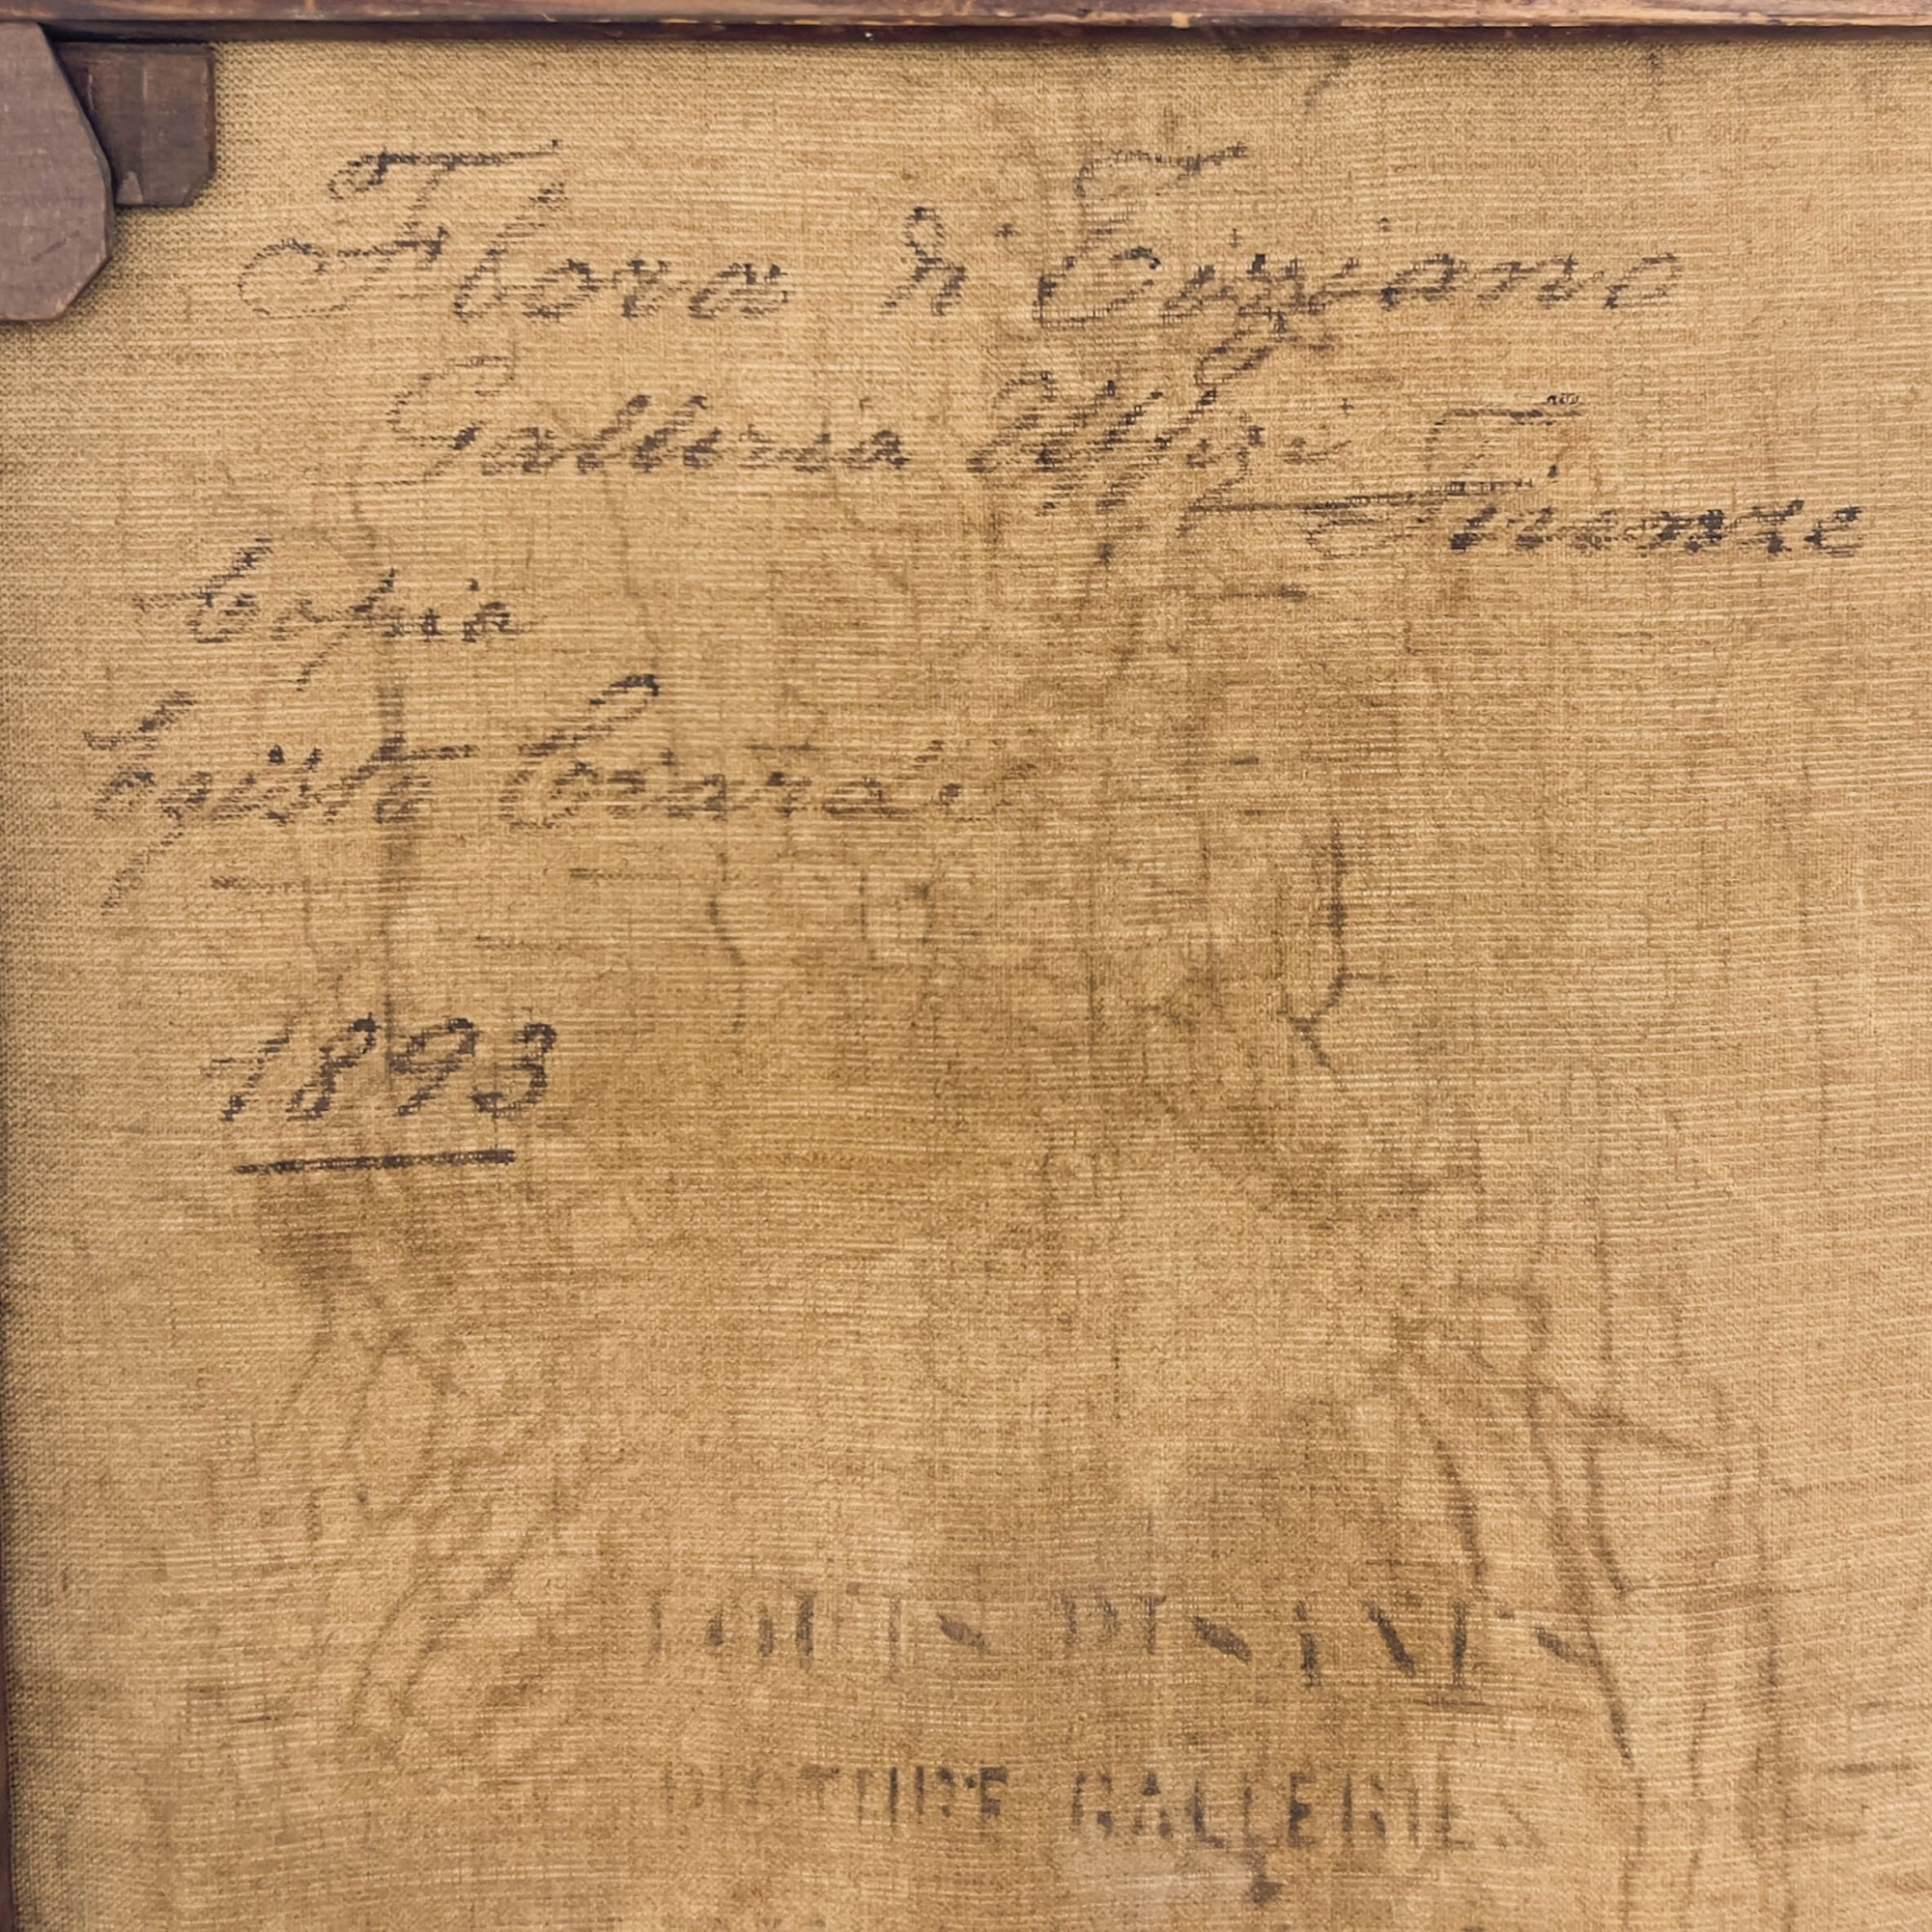 Flora di Tiziano
Galleria Uffizi
Firenze
Copia
Egisto
1893
LOUIS PISANI'S
PICTURE GALLERIES